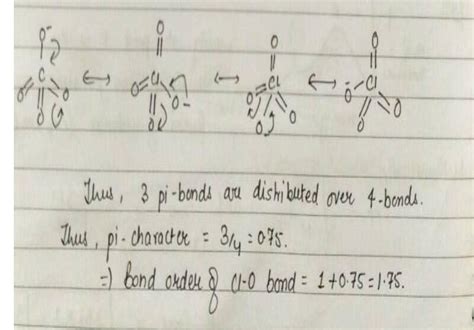 O⁻ O O O
O=C=O ↔ O=Cl-O⁻ ↔ O=Cl=O ↔ ⁻O-Cl=O
O O O O
Thus, 3 pi-bonds are distributed over 4-bonds.
Thus, pi-character = 3/4 = 0.75.
⇒) Bond order of Cl-O bond = 1+0.75 = 1.75.